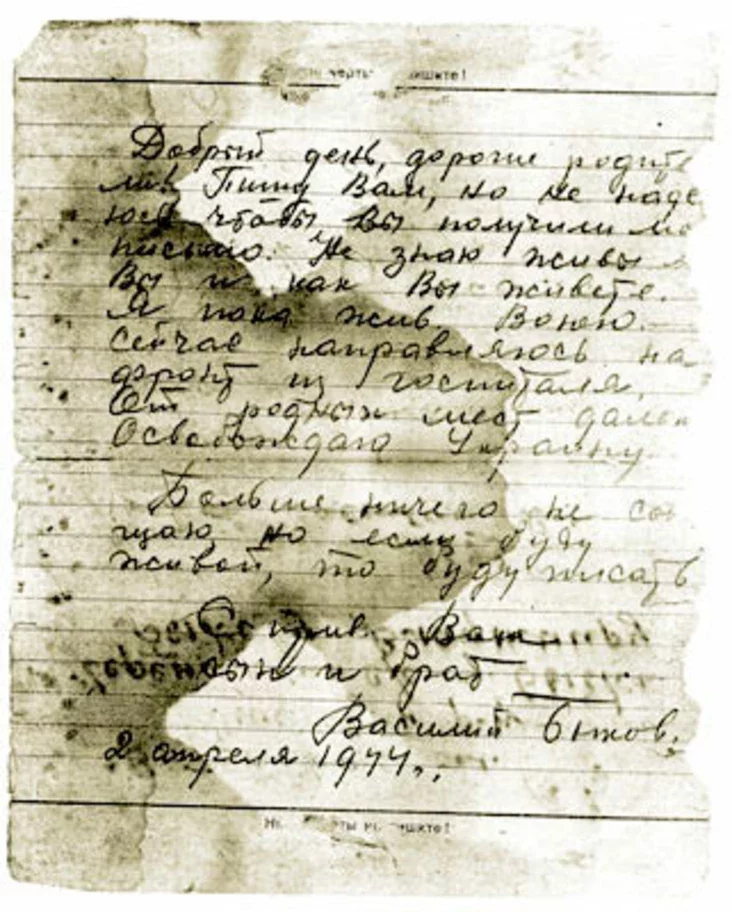 черты пишите!
Добрый день, дорогие родите
ли! Пишу Вам, но не наде
юсь чтобы Вы получили мо
письмо. Не знаю живы
Вы и как Вы живете.
Я пока жив Воюю.
Сейчас направляюсь на
фронт из госпиталя,
От родных мест дале
Освобождаю Украину
Больше ничего не соо
щаю, но если буду
живой, то буду писать
С прив. Ваш
сын и брат
Василий Быков.
2 апреля 1944.